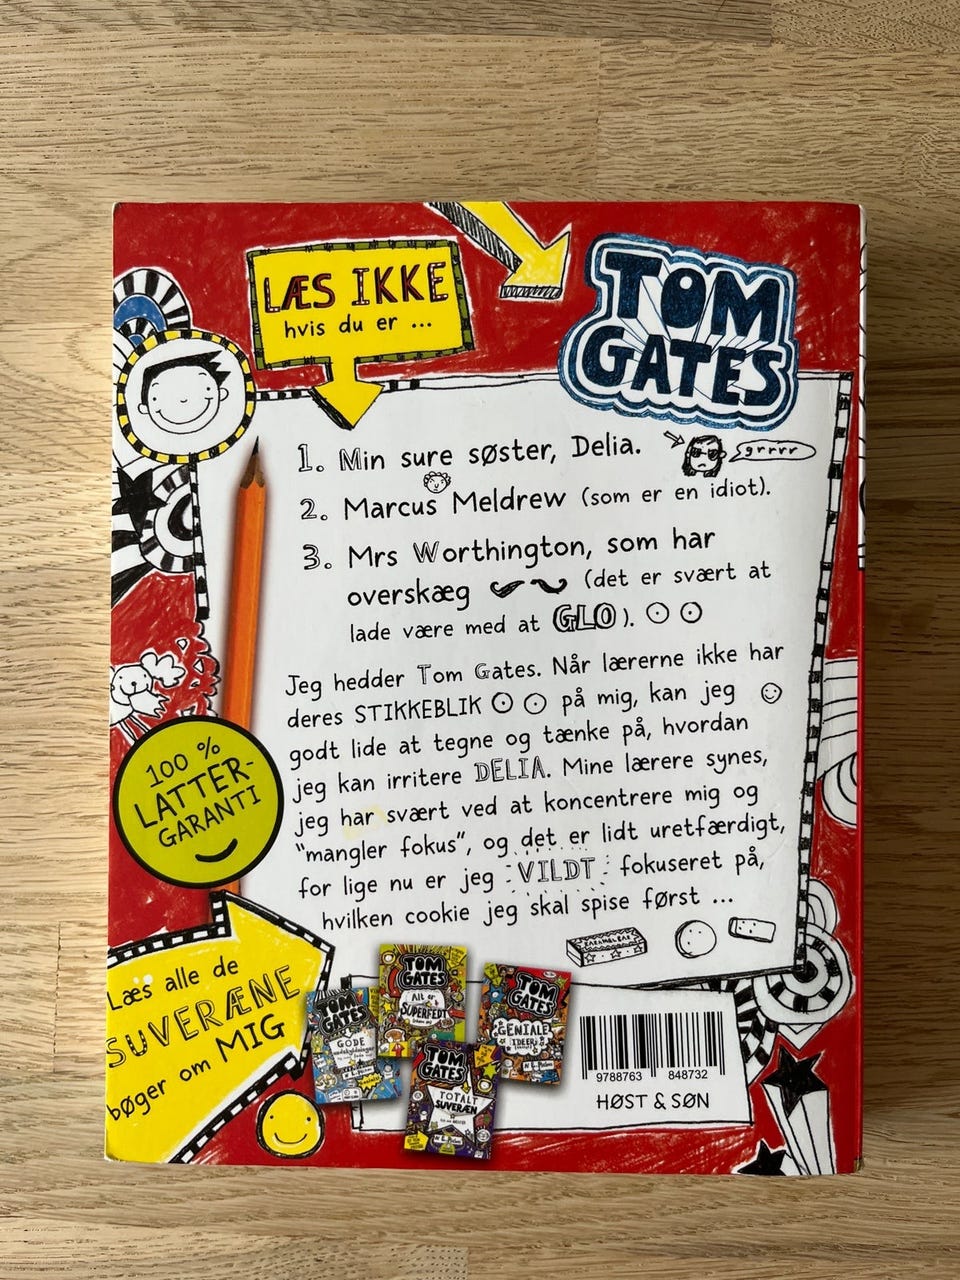 LÆS IKKE
hvis du er ...
TOM
GATES
1. Min sure søster, Delia.
grrrr
2. Marcus Meldrew (som er en idiot).
3. Mrs Worthington, som har
overskæg (det er svært at
lade være med at GLO).
Jeg hedder Tom Gates. Når lærerne ikke har
deres STIKKEBLIK på mig, kan jeg
godt lide at tegne og tænke på, hvordan
jeg kan irritere DELIA. Mine lærere synes,
jeg har svært ved at koncentrere mig og
"mangler fokus", og det er lidt uretfærdigt,
for lige nu er jeg VILDT fokuseret på,
hvilken cookie jeg skal spise først ...
100 %
LATTER-
GARANTI
KARAMELBAR
Læs alle de
SUVERÆNE
bøger om MIG
TOM
GATES
GODE
undskyldninger
TOM
GATES
Alt er
SUPERFEDT
TOM
GATES
GENIALE
IDEER
TOM
GATES
TOTALT
SUVERÆN
9788763 848732
HØST & SØN